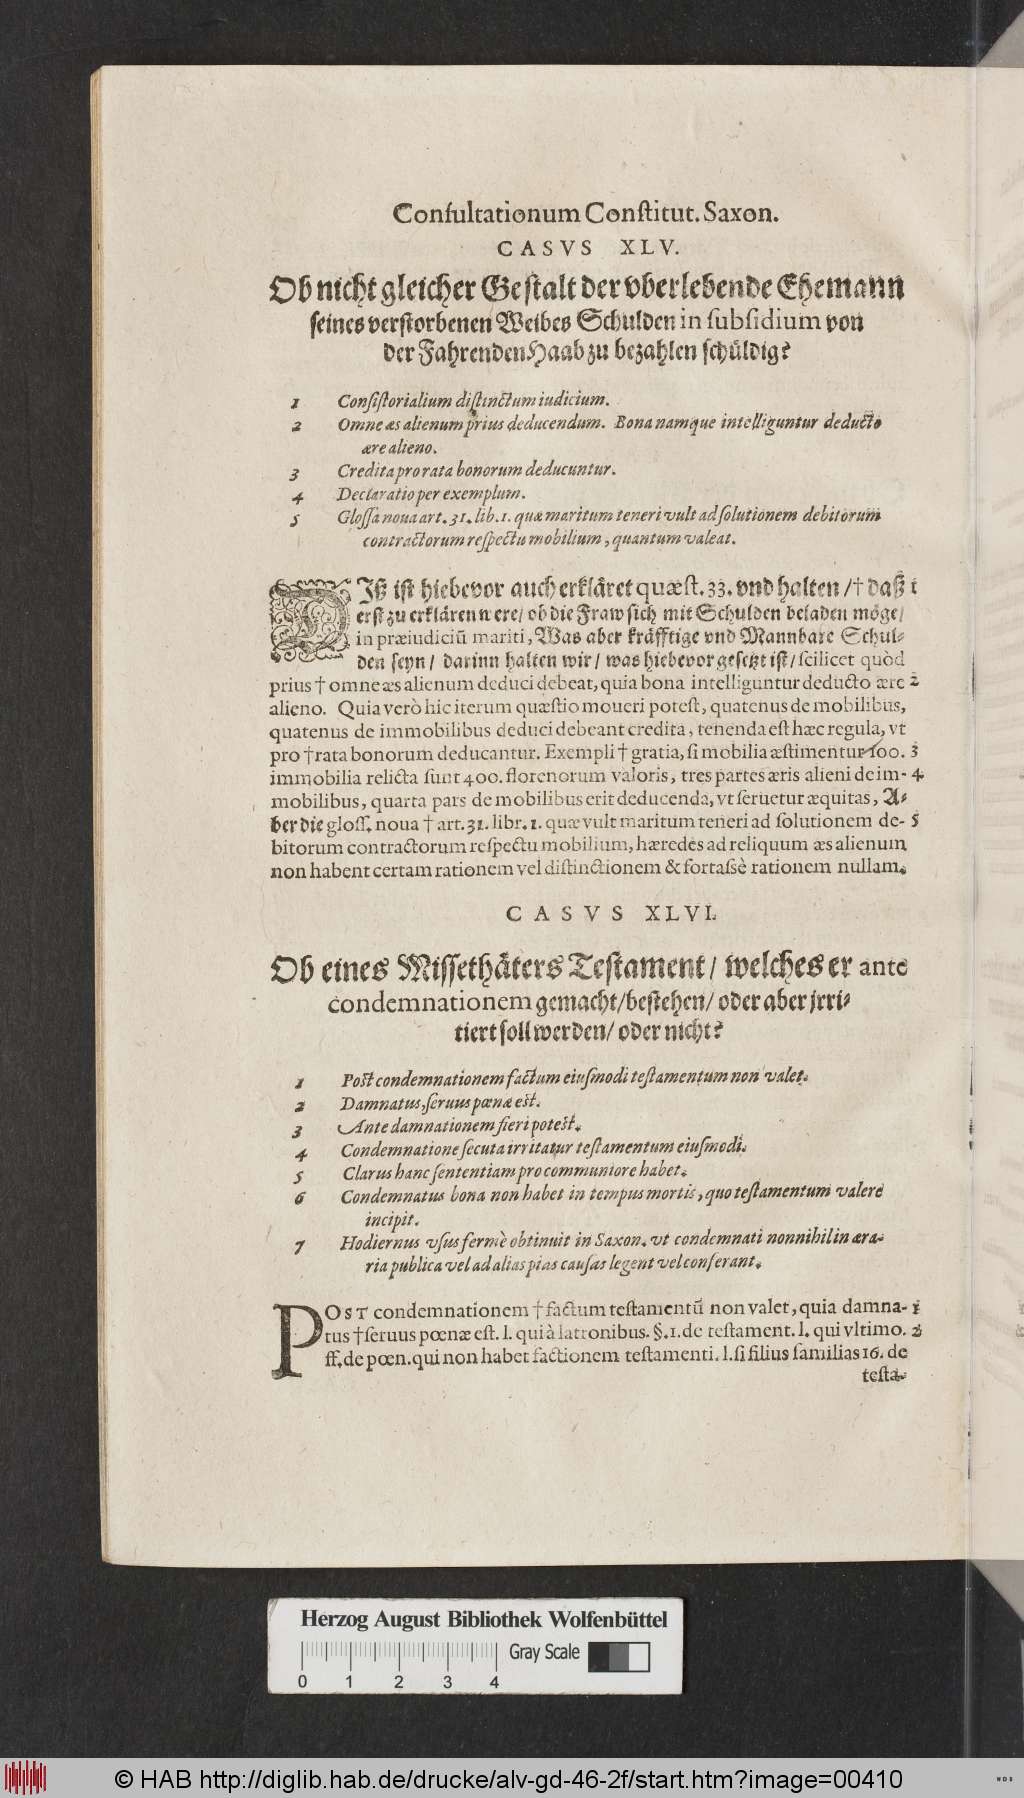 Conſultationum Conſtitut. Saxon.
CASVS XLV.
Ob nicht gleicher Geſtalt der vberlebende Ehemann
ſeines verſtorbenen Weibes Schulden in ſubſidium von
der Fahrenden Haab zu bezahlen ſchüldig?
1 Conſiſtorialium diſtinctum iudicium.
2 Omne æs alienum prius deducendum. Bona namque intelliguntur deducto
ære alieno.
3 Credita pro rata bonorum deducuntur.
4 Declaratio per exemplum.
5 Gloſſa noua art. 31. lib. 1. quæ maritum teneri vult ad ſolutionem debitorum
contractorum reſpectu mobilium, quantum valeat.
DIß iſt hiebevor auch erkläret quæſt. 33. vnd halten / † daß 1
erſt zu erklären were / ob die Fraw ſich mit Schulden beladen möge /
in præiudiciū mariti, Was aber kräfftige vnd Mannbare Schul-
den ſeyn / darinn halten wir / was hiebevor geſetzt iſt / ſcilicet quòd
prius † omne æs alienum deduci debeat, quia bona intelliguntur deducto ære 2
alieno. Quia verò hic iterum quæſtio moueri poteſt, quatenus de mobilibus,
quatenus de immobilibus deduci debeant credita, tenenda eſt hæc regula, vt
pro † rata bonorum deducantur. Exempli † gratia, ſi mobilia æſtimentur 100. 3
immobilia relicta ſunt 400. florenorum valoris, tres partes æris alieni de im- 4
mobilibus, quarta pars de mobilibus erit deducenda, vt ſeruetur æquitas, A-
ber die gloſſ. noua † art. 31. libr. 1. quæ vult maritum teneri ad ſolutionem de- 5
bitorum contractorum reſpectu mobilium, hæredes ad reliquum æs alienum
non habent certam rationem vel diſtinctionem & fortaſsè rationem nullam.
CASVS XLVI.
Ob eines Miſſethäters Teſtament / welches er ante
condemnationem gemacht / beſtehen / oder aber jrri-
tiert ſoll werden / oder nicht?
1 Poſt condemnationem factum eiuſmodi teſtamentum non valet.
2 Damnatus, ſeruus pœnæ eſt.
3 Ante damnationem fieri poteſt.
4 Condemnatione ſecuta irritatur teſtamentum eiuſmodi.
5 Clarus hanc ſententiam pro communiore habet.
6 Condemnatus bona non habet in tempus mortis, quo teſtamentum valere
incipit.
7 Hodiernus vſus fermè obtinuit in Saxon. vt condemnati nonnihil in æra-
ria publica vel ad alias pias cauſas legent vel conferant.
POST condemnationem † factum teſtamentū non valet, quia damna- 1
tus † ſeruus pœnæ eſt. l. qui à latronibus. §. 1. de teſtament. l. qui vltimo. 2
ff. de pœn. qui non habet factionem teſtamenti. l. ſi filius familias 16. de
teſta-
Herzog August Bibliothek Wolfenbüttel
Gray Scale
0 1 2 3 4
© HAB http://diglib.hab.de/drucke/alv-gd-46-2f/start.htm?image=00410